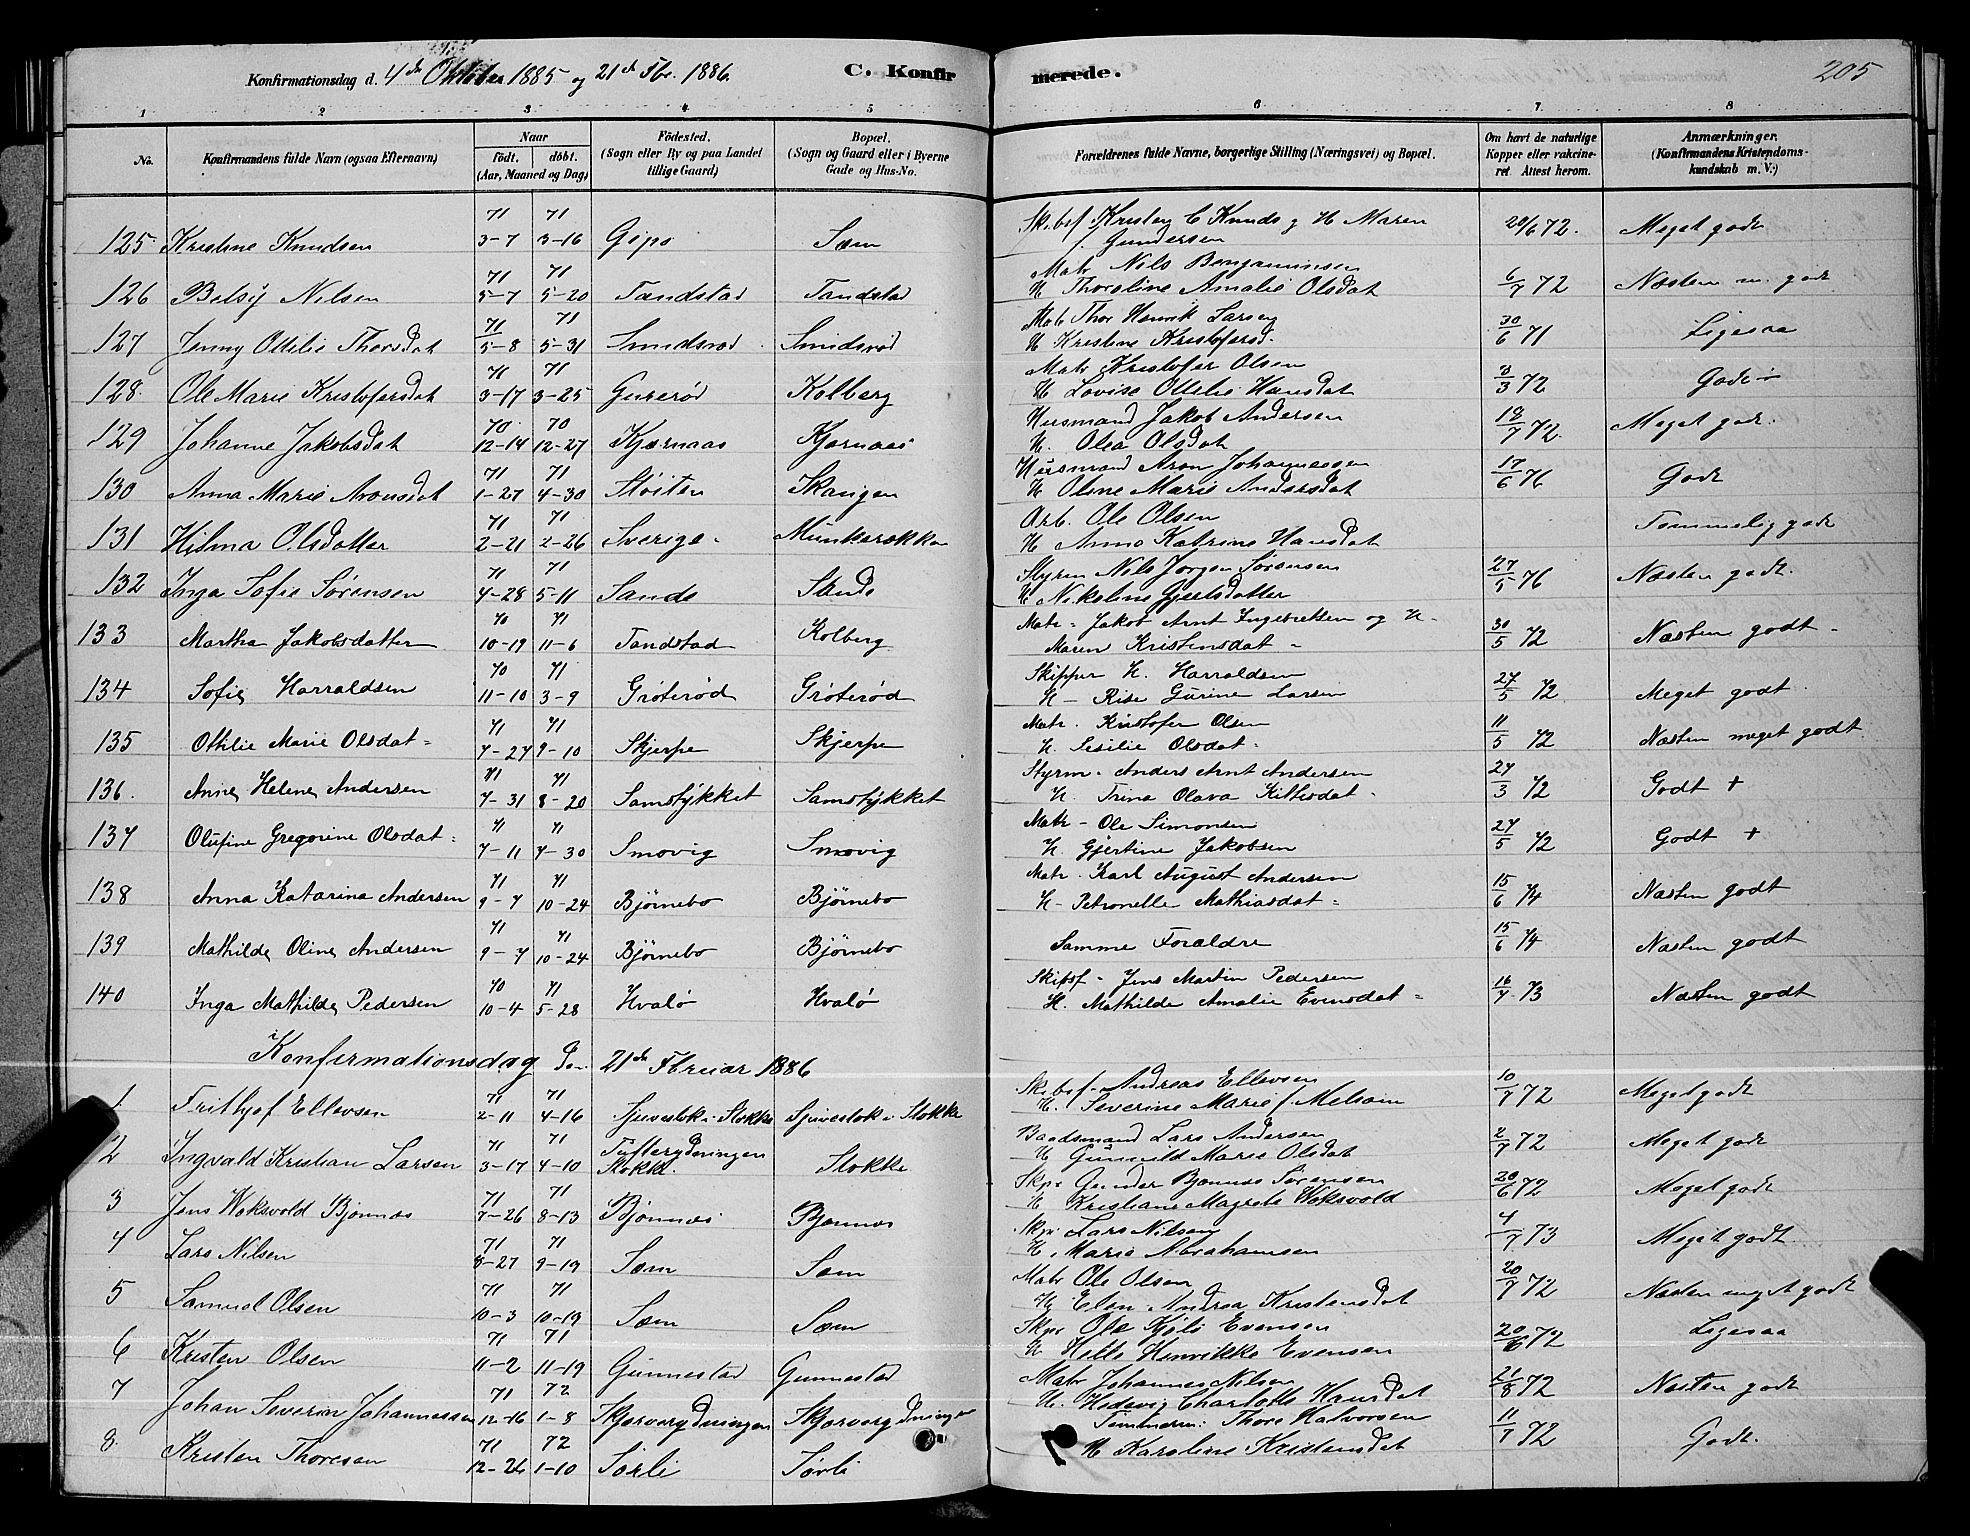 Konfirmationsdag d. 4de Oktober 1885 og 21de Fbr. 1886. C. Konfirmerede. 205
1 2 3 4 5 6 7 8
No. Konfirmandens fulde Navn (ogsaa Efternavn) Naar født. døbt. (Aar, Maaned og Dag) Fødested. (Sogn eller By og paa Landet tillige Gaard) Bopæl. (Sogn og Gaard eller i Byerne Gade og Hus-No. Forældrenes fulde Navne, borgerlige Stilling (Næringsvei) og Bopæl. Om havt de naturlige Kopper eller vakcineret. Attest herom. Anmærkninger. (Konfirmandens Kristendomskundskab m. V.)
71 71 Skibsf Kristen C Knuds g H Maren
125 Kristine Knudsen 3-7 3-16 Gipø Sæm Gundersen 20/6 72. Meget godt
71 71 Matr Nils Benjaminsen
126 Betsy Nilsen 5-7 5-20 Tandstad Tandstad H Thoraline Amalie Olsdat 6/7 72 Næsten m. godt
71 71 Matr Thor Henrik Larsen
127 Jenny Ottilie Thorsdat 5-8 5-31 Smidsrød Smidsrød H Kristine Kristofersd. 30/6 71 Ligesaa
71 71 Matr Kristofer Olsen
128. Ole Marie Kristofersdat 3-17 3-25 Gurerød Kolberg H Lovise Ottilie Hansdat 8/3 72 Godt
70 70 Husmand Jakob Andersen
129 Johanne Jakobsdat 12-14 12-27 Kjærnaas Kjærnaas H. Olea Olsdat 18/7 72. Meget godt.
71 71 Husmand Aron Johannesen
130 Anna Marie Aronsdat 1-27 4-30 Støiten Skaugen H Oline Marie Andersdat 17/6 76 Godt
71 71 Arb. Ole Olsen
131 Hilma Olsdatter 2-21 2-26 Sverige Munkerekka H Anna Katrine Hansdat Temmelig godt
71 71 Styrm Nils Jørgen Sørensen
132 Inga Sofie Sørensen 4-28 5-11 Sande Sande H Nikoline Gjertsdatter 27/5 76 Næsten godt.
70 71 Matr. Jakob Arnt Ingebretsen og H.
133 Martha Jakobsdatter 10-19 11-6 Tandstad Kolberg Maren Kristensdat 30/5 72 Næsten godt
70 71 Skipper H. Harraldsen
134 Sofie Harraldsen 11-10 3-9 Grøterød Grøterød H Rise Gurine Larsen 27/5 72 Meget godt.
71 71 Matr. Kristofer Olsen
135 Ottilie Marie Olsdat 7-27 9-10 Skjerpe Skjerpe H. Sesilie Olsdat 11/5 72 Næsten meget godt
71 71 Styrm. Anders Arnt Andersen
136. Anne Helene Andersen 7-31 8-20 Samstykket Samstykket H. Trine Olava Kittisdat 27/3 72 Godt +
71 71 Matr - Ole Simonsen
137 Olufine Gregorine Olsdat 7-11 7-30 Smovig Smovig H. Gjertine Jakobsen 27/5 72 Godt +
71 71 Matr. Karl August Andersen
138 Anna Katarina Andersen 9-7 10-24 Bjørnebo Bjørnebo H. Petronelle Mathiasdat 15/6 74 Næsten godt
71 71
139 Mathilde Oline Andersen 9-7 10-24 Bjørnebo Bjørnebo Samme Forældre 15/6 74 Næsten godt
70 71 Skibsf. Jens Martin Pedersen
140 Inga Mathilde Pedersen 10-4 5-28 Hvalø Hvalø H. Mathilde Amalie Evensdat 16/7 73 Næsten godt
Konfirmationsdag den 21de Februar 1886
71 71 Skibsf. Andreas Ellevsen
1 Frithjof Ellevsen 2-11 4-16 Gjuvestok i Stokke Gjuvestok i Stokke H. Severine Marie f. Melsom 10/7 72 Meget godt
71 71 Tufterydningen Baadsmand Lars Andersen
2 Ingvald Kristian Larsen 3-17 4-10 Stokke. Stokke H Gunnild Marie Olsdat 2/7 72 Meget godt
71 71 Skpr Gunder Bjønnæs Sørensen
3 Jens Woksvold Bjønnæs 7-26 8-13 Bjønnæs Bjønnæs H Kristiane Magrete Woksvold 20/6 72 Meget godt
71 71 Skpr Lars Nilsen
4 Lars Nilsen 8-27 9-19 Sæm Sæm H. Marie Abrahamsen 4/7 73 Meget godt.
71 71 Matr Ole Olsen
5 Samuel Olsen 10-3 10-19 Sæm Sæm H. Elen Andrea Kristensdat 20/7 72 Næsten meget godt
71 71 Skpr Ole Kjølø Evensen
6 Kristen Olsen 11-2 11-19 Gunnestad Gunnestad H Helle Henrikke Evensen 20/6 72 Ligesaa
71 72 Matr Johannes Nilsen
7 Johan Severin Johannessen 12-16 1-8 Skjærverydningen Skjærverydningen H. Hedevig Charlotte Hansdat 21/8 72 Næsten godt
71 72 Tømmerm: Thore Halvorsen
8. Kristen Thoresen 12-26 1-10 Sørli Sørli H Karoline Kristensdat 11/7 72 Godt.